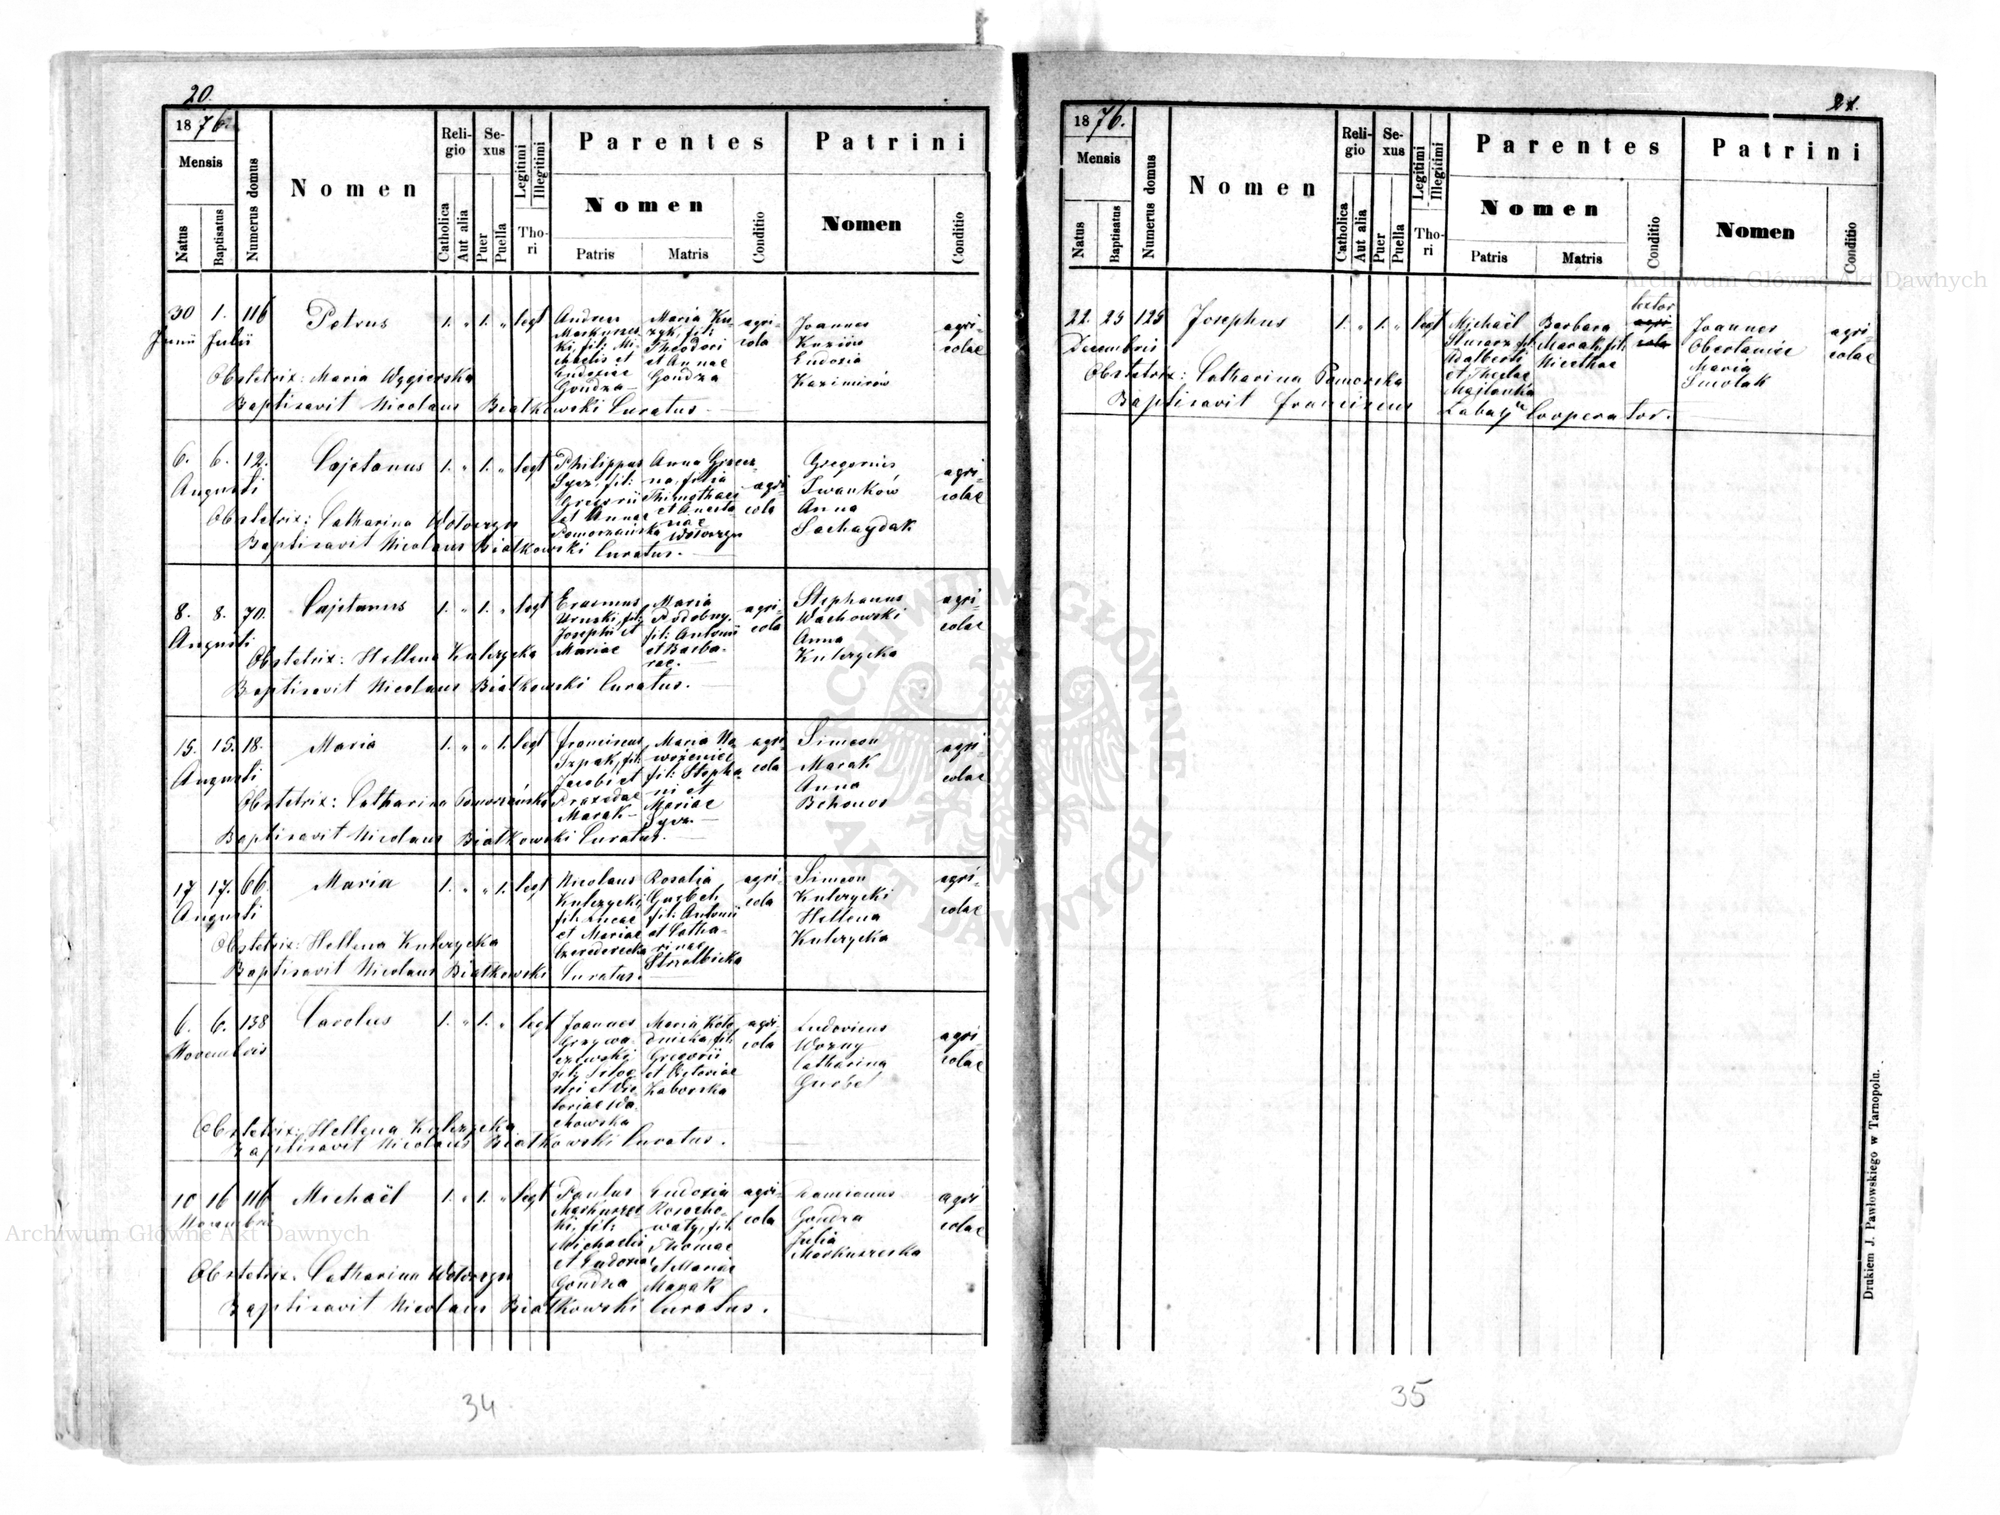 20.
1876.
Mensis
Natus
Baptisatus
Numerus domus
Nomen
Religio
Catholica
Aut alia
Sexus
Puer
Puella
Legitimi
Illegitimi
Thori
Parentes
Nomen
Patris
Matris
Conditio
Patrini
Nomen
Conditio
30 1. 116 Petrus 1. „ 1. „ legt
Junii Julii
Andreas
Markuszes
ki, fil: Mi
chaelis et
Eudoxiae
Gondza
Maria Ku
zyk, fil:
Theodori
et Annae
Gondza
agri-
cola
Joannes
Kuzów
Eudoxia
Kazimirów
agri-
colae
Obstetrix: Maria Węgierska
Baptisavit Nicolaus Białkowski Curatus.
6. 6. 12. Cajetanus 1. „ 1. „ legt
Augusti
Philippus
Sycz, fil:
Gregorii
et Annae
Pomorzańska
Anna
filia
Thimothaei
et Anasta-
siae
Wołoszyn
agri
cola
Gregorius
Iwanków
Anna
Sachaydak
agri-
colae
Obstetrix: Catharina Wołoszyn
Baptisavit Nicolaus Białkowski Curatus.
8. 8. 70. Cajetanus 1. „ 1. „ legt
Augusti
Erasmus
Uruski, fil:
Josephi et
Mariae
Maria
Podobny,
fil: Antonii
et Barba-
rae.
agri-
cola
Stephanus
Wachowski
Anna
Kulczycka
agri-
colae
Obstetrix: Hellena Kulczycka
Baptisavit Nicolaus Białkowski Curatus.
15. 15. 18. Maria 1. „ „ 1. legt
Augusti
Franciscus
Szpak, fil:
Jacobi et
Praxedae
Marak
Maria No
woženiec
fil: Stepha-
ni et
Mariae
Sycz
agri
cola
Simeon
Marak
Anna
Behonos
agri-
colae
Obstetrix: Catharina Pomorzańska
Baptisavit Nicolaus Białkowski Curatus.
17 17. 66. Maria 1. „ „ 1. legt
Augusti
Nicolaus
Kulczycki,
fil: Lucae
et Mariae
Czeredarecka
Rosalia
Gurbeh
fil: Antonii
et Catha-
rinae
Strzelbicka
agri-
cola
Simeon
Kulczycki
Hellena
Kulczycka
agri-
colae
Obstetrix: Hellena Kulczycka
Baptisavit Nicolaus Białkowski Curatus.
6. 6. 138 Carolus 1. „ 1. „ legt
Novembris
Joannes
Grzywa-
czewski
fil: Silve
stri et Vic
toriae Wa-
chowska
Maria Koło
dnicka, fil:
Gregorii
et Victoriae
Zaborska
agri
cola
Ludovicus
Wozny
Catharina
Gurbe
agri-
colae
Obstetrix: Hellena Kulczycka
Baptisavit Nicolaus Białkowski Curatus.
10 16 116 Michaël 1. „ 1. „ legt
Novembris
Paulus
Markuszes
ki, fil:
Michaelis
et Eudoxiae
Gondza
Eudoxia
Rosocho-
waty, fil:
Thomae
et Mariae
Marak
agri-
cola
Damianus
Gondza
Julia
Markuszeska
agri
colae
Obstetrix: Catharina Wołoszyn
Baptisavit Nicolaus Białkowski Curatus.
34
21.
1876.
Mensis
Natus
Baptisatus
Numerus domus
Nomen
Religio
Catholica
Aut alia
Sexus
Puer
Puella
Legitimi
Illegitimi
Thori
Parentes
Nomen
Patris
Matris
Conditio
Patrini
Nomen
Conditio
22. 25 125 Josephus 1. „ 1. „ legt
Decembris
Michaël
Slusarz, fil:
Adalberti
et Theclae
Majlanka
Barbara
Marak, fil:
Nicethae
agri
cola
Joannes
Obertaniec
Maria
Smolak
agri-
colae
Obstetrix: Catharina Pomorska
Baptisavit Franciscus Labay Cooperator.
Drukiem J. Pawłowskiego w Tarnopolu.
35
Archiwum Główne Akt Dawnych
Archiwum Główne Akt Dawnych
ARCHIWUM GŁÓWNE AKT DAWNYCH